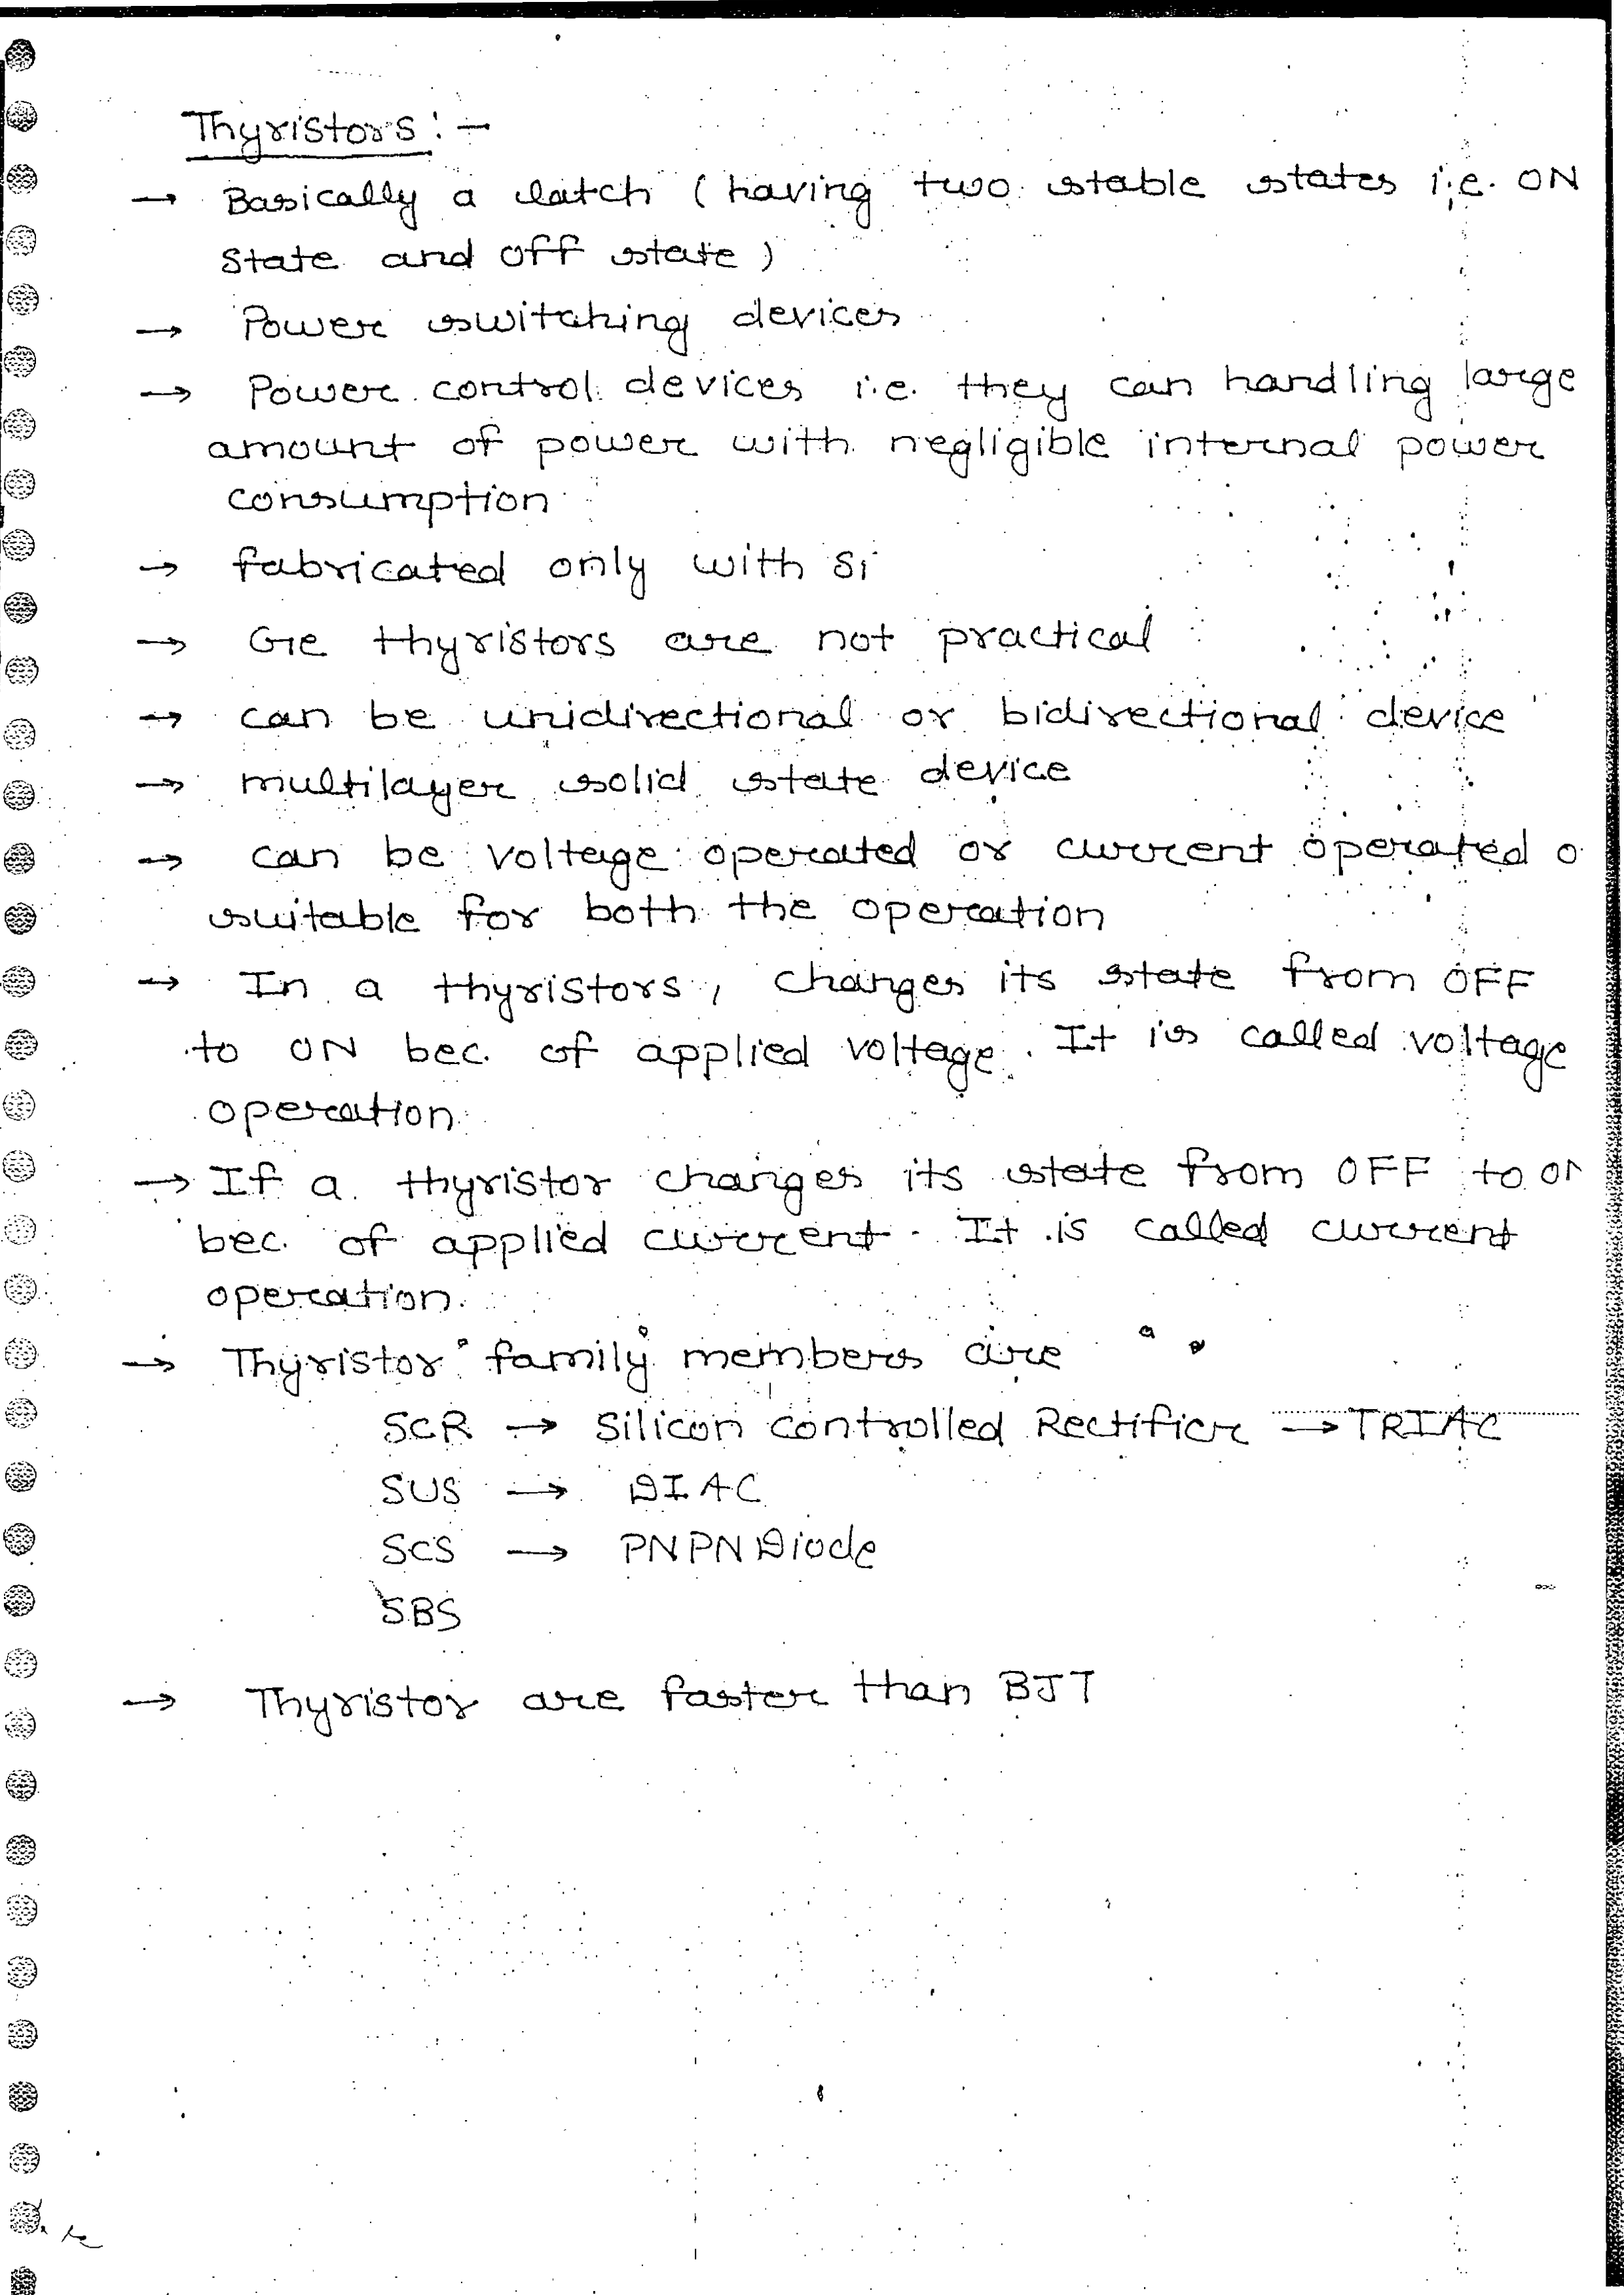 Thyristors :-
→ Basically a latch (having two stable states i.e. ON
State and off state)
→ Power switching devices
→ Power control devices i.e. they can handling large
amount of power with negligible internal power
consumption
→ fabricated only with Si
→ Ge thyristors are not practical
→ can be unidirectional or bidirectional device
→ multilayer solid state device
→ can be voltage operated or current operated o
suitable for both the operation
→ In a thyristors, changes its state from OFF
to ON bec. of applied voltage. It is called voltage
operation.
→ If a thyristor changes its state from OFF to ON
bec. of applied current. It is called current
operation.
→ Thyristor family members are
SCR → Silicon controlled Rectifier → TRIAC
SUS → DIAC
SCS → PNPN Diode
SBS
→ Thyristor are faster than BJT